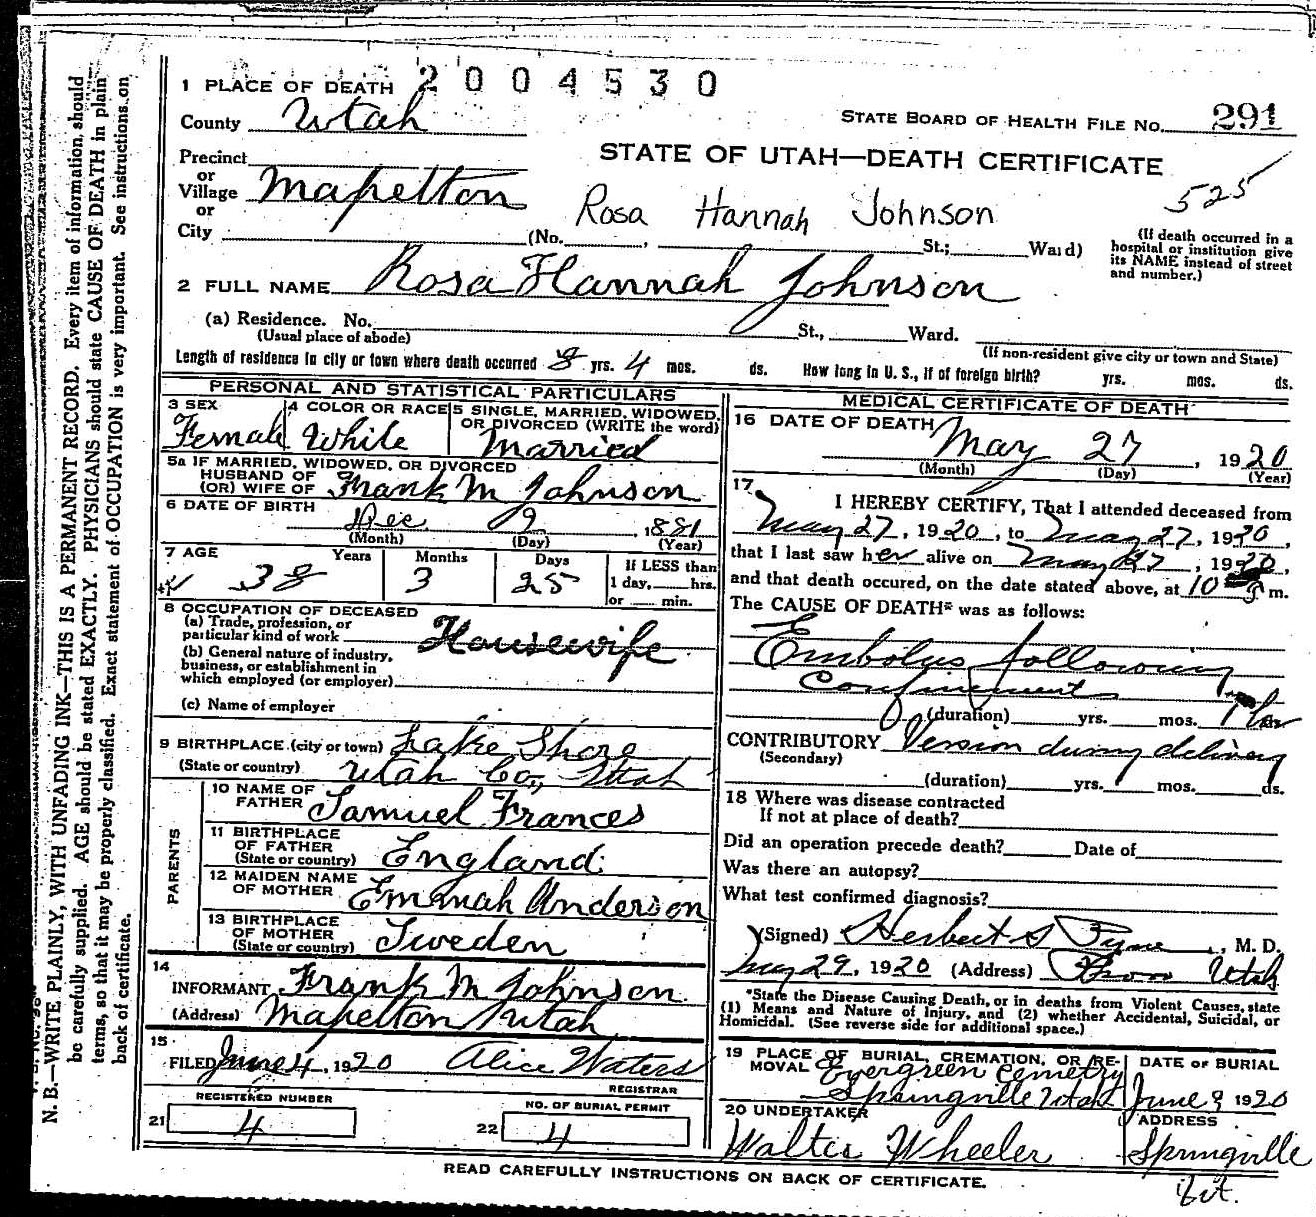 2004530
1 PLACE OF DEATH
County Utah
STATE BOARD OF HEALTH FILE NO. 291
STATE OF UTAH—DEATH CERTIFICATE
525
Precinct
or
Village Mapelton
or
City
Rosa Hannah Johnson
(No. , St.; Ward)
(If death occurred in a
hospital or institution give
its NAME instead of street
and number.)
2 FULL NAME Rosa Hannah Johnson
(a) Residence. No. St., Ward.
(Usual place of abode)
(If non-resident give city or town and State)
Length of residence in city or town where death occurred 8 yrs. 4 mos. ds. How long in U. S., if of foreign birth? yrs. mos. ds.
PERSONAL AND STATISTICAL PARTICULARS
3 SEX
Female
4 COLOR OR RACE
White
5 SINGLE, MARRIED, WIDOWED,
OR DIVORCED (WRITE the word)
Married
5a IF MARRIED, WIDOWED, OR DIVORCED
HUSBAND OF
(OR) WIFE OF Frank M Johnson
6 DATE OF BIRTH
Dec 9 , 1881
(Month) (Day) (Year)
7 AGE Years Months Days
38 3 25
If LESS than
1 day, hrs.
or min.
8 OCCUPATION OF DECEASED
(a) Trade, profession, or
particular kind of work Housewife
(b) General nature of industry,
business, or establishment in
which employed (or employer)
(c) Name of employer
9 BIRTHPLACE (city or town) Lake Shore
(State or country) Utah Co., Utah
PARENTS
10 NAME OF
FATHER Samuel Frances
11 BIRTHPLACE
OF FATHER
(State or country) England
12 MAIDEN NAME
OF MOTHER Emmah Anderson
13 BIRTHPLACE
OF MOTHER
(State or country) Sweden
14
INFORMANT Frank M Johnson
(Address) Mapelton Utah
15
FILED June 4, 1920 Alice Waters
REGISTRAR
REGISTERED NUMBER
21 4
NO. OF BURIAL PERMIT
22 4
MEDICAL CERTIFICATE OF DEATH
16 DATE OF DEATH
May 27 , 1920
(Month) (Day) (Year)
17
I HEREBY CERTIFY, That I attended deceased from
May 27, 1920, to May 27, 1920,
that I last saw her alive on May 27, 1920,
and that death occured, on the date stated above, at 10 m.
The CAUSE OF DEATH* was as follows:
Embolus following
Confinement
(duration) yrs. mos. 1 hr
CONTRIBUTORY Version during delivery
(Secondary)
(duration) yrs. mos. ds.
18 Where was disease contracted
If not at place of death?
Did an operation precede death? Date of
Was there an autopsy?
What test confirmed diagnosis?
(Signed) Herbert S Pyne, M. D.
May 29, 1920 (Address) Provo Utah
*State the Disease Causing Death, or in deaths from Violent Causes, state
(1) Means and Nature of Injury, and (2) whether Accidental, Suicidal, or
Homicidal. (See reverse side for additional space.)
19 PLACE OF BURIAL, CREMATION, OR RE-
MOVAL Evergreen Cemetry
Springville Utah
DATE OF BURIAL
June 1920
20 UNDERTAKER
Walter Wheeler
ADDRESS
Springville
Ut.
READ CAREFULLY INSTRUCTIONS ON BACK OF CERTIFICATE.
N. B.—WRITE PLAINLY, WITH UNFADING INK—THIS IS A PERMANENT RECORD. Every item of information should
be carefully supplied. AGE should be stated EXACTLY. PHYSICIANS should state CAUSE OF DEATH in plain
terms, so that it may be properly classified. Exact statement of OCCUPATION is very important. See instructions on
back of certificate.